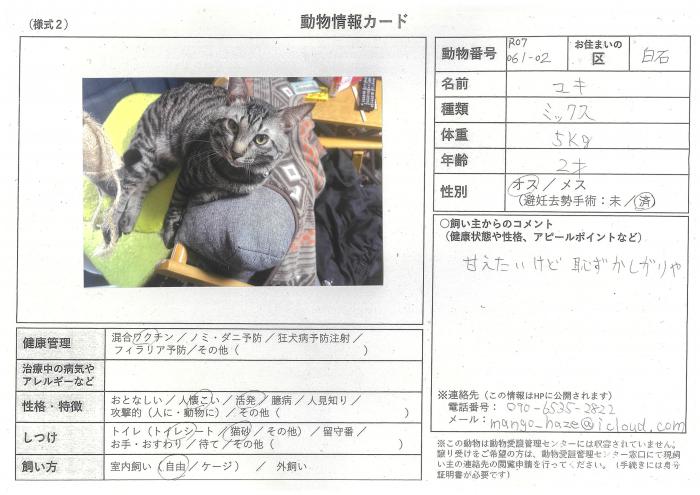 （様式２）
動物情報カード
動物番号 R07 061-02 お住まいの区 白石
名前 ユキ
種類 ミックス
体重 5kg
年齢 2才
性別 オス／メス
（避妊去勢手術：未／済）
○飼い主からのコメント
（健康状態や性格、アピールポイントなど）
甘えたいけど 恥ずかしがりや
※連絡先（この情報はHPに公開されます）
電話番号： 090-6535-2822
メール： mango_haze@icloud.com
※この動物は動物愛護管理センターには収容されていません。
譲り受けをご希望の方は、動物愛護管理センター窓口にて現飼
い主の連絡先の閲覧申請を行ってください。（手続きには身分
証明書が必要です）
健康管理 混合ワクチン／ノミ・ダニ予防／狂犬病予防注射／
フィラリア予防／その他（ ）
治療中の病気や
アレルギーなど
性格・特徴 おとなしい／人懐こい／活発／臆病／人見知り／
攻撃的（人に・動物に）／その他（ ）
しつけ トイレ（トイレシート／猫砂／その他）／留守番／
お手・おすわり／待て／その他（ ）
飼い方 室内飼い（自由／ケージ） ／ 外飼い